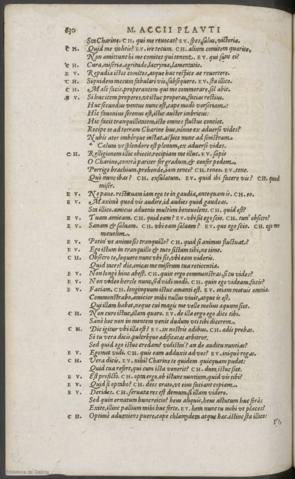 630 M. ACCII PLAVTI
Sto Charine. CH. qui me reuocat? EV. spes, salus, victoria.
CH. Quid me voltis? EV. ire tecum. CH. alium comitem quærite,
Non amittunt hi me comites qui tenent. EV. qui sunt ei?
CH. Cura, miseria, ægritudo, lacrymæ, lamentatio.
EV. Repudia istos comites, atque hac respice ac reuertere.
CH. Siquidem mecum fabulari vis, subsequere. EV. sta ilico.
CH. Male facis, properantem qui me commorare, sol abit.
EV. Si huc item properes, vt istuc properas, facias rectius.
Huc secundus ventus nunc est, cape modo vorsoriam:
Hic fauonius serenus est, istic auster imbricus:
Hic facit tranquillitatem, iste omnes fluctus conciet.
Recipe te ad terram Charine huc, nonne ex aduerso vides?
Nubis ater imberque instat, aspice nunc ad sinistram.
* Calum vt splendore est plenum, ex aduerso vides.
CH. Relligionem illic obiecit, recipiam me illuc. EV. sapis
O Charine, contra pariter fer gradum, & confer pedem.
Porrige brachium, prehende, iam tenes? CH. teneo. EV. tene.
Quo nunc ibas? CH. exsulatum. EV. quid ibi faceres vis? CH. quod
miser.
EV. Ne paue, restituam iam ego te in gaudia, antequam is. CH. eo.
EV. Maxumè quod vis audire, id audies quod gaudeas.
Sta ilico, amicus aduenio multùm beneuolens. CH. quid est?
EV. Tuam amicam. CH. quid eam? EV. vbi sit ego scio. CH. tun' obsecro?
EV. Sanam & saluam. CH. vbi eam saluam? EV. quo ego scio. CH. ego me
mauelim.
EV. Potin' vt animo sis tranquillo? CH. quid si animus fluctuat?
EV. Ego istum in tranquillo & tuto sistam tibi, ne time.
CH. Obsecro te, loquere nunc vbi sit, vbi eam videris.
Quid taces? dic, enicas me miserum tua reticentia.
EV. Non longè hinc abest. CH. quin ergo commonstras, si tu vides?
EV. Non video hercle nunc, sed vidi modò. CH. quin ego videam, facis?
EV. Faciam. CH. longinquum istuc amanti est. EV. etiam metuis? omnia
Commonstrabo, amicior mihi nullus viuit, atque is est,
Qui illam habet, neque cui magis me velle melius æquum siet.
CH. Non curo istuc, illam quæro. EV. de illa ergo ego dico tibi.
Sanè hoc non in mentem venit dudum vt tibi dicerem.
CH. Dic igitur vbi illa est? EV. in nostris ædibus. CH. ædis probas,
Si tu vera dicis, pulcrèque ædificatas arbitror.
Sed quid ego istuc credam? vidistin'? an de auditu nuntias?
EV. Egomet vidi. CH. quis eam adduxit ad vos? EV. iniquè rogas.
CH. Vera dicis. EV. nihil Charine te quidem quicquam pudet:
Quid tua refert, qui cum ista venerit? CH. dum istic siet.
EV. Est profectò. CH. opta ergo, ob istunc nuntium, quid vis tibi?
EV. Quid si optabo? CH. deos orato, vt eius faciant copiam.
EV. Derides. CH. seruata res est demum, si illam videro.
Sed quin ornatum hunc reiicio? heus aliquis, heus actutum huc foràs
Exite, illinc pallium mihi huc ferte. EV. hem nunc tu mihi vt places!
CH. Optimè aduenis puere, cape chlamydem atque hac. istinc sta ilico: